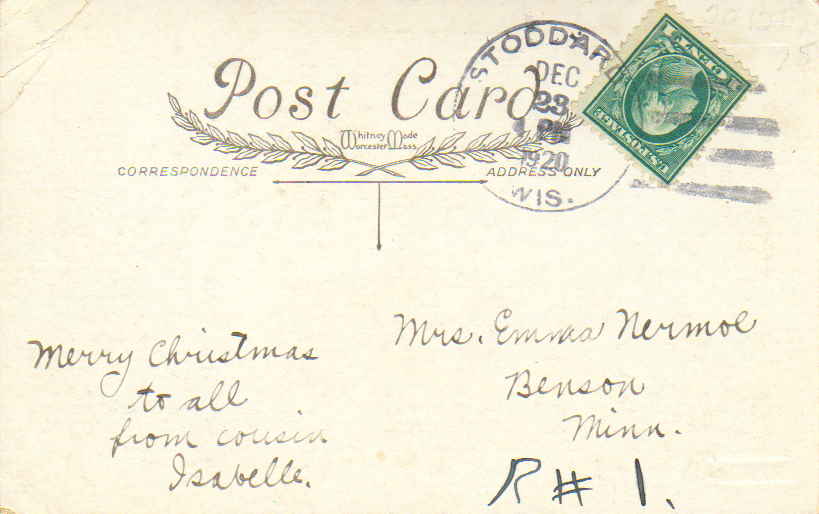 Post Card
STODDARD
DEC
23
1920
WIS.
1 CENT 1
U.S. POSTAGE
Whitney Made
Worcester Mass.
CORRESPONDENCE
ADDRESS ONLY
Merry Christmas
to all
from cousin
Isabelle.
Mrs. Emma Nermoe
Benson
Minn.
R # 1.